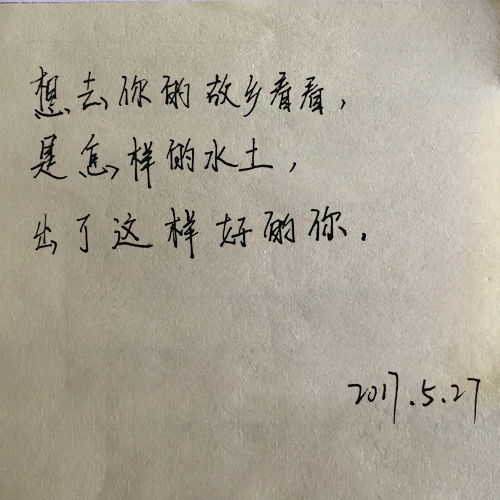 想去你的故乡看看，
是怎样的水土，
出了这样好的你．
2017.5.27